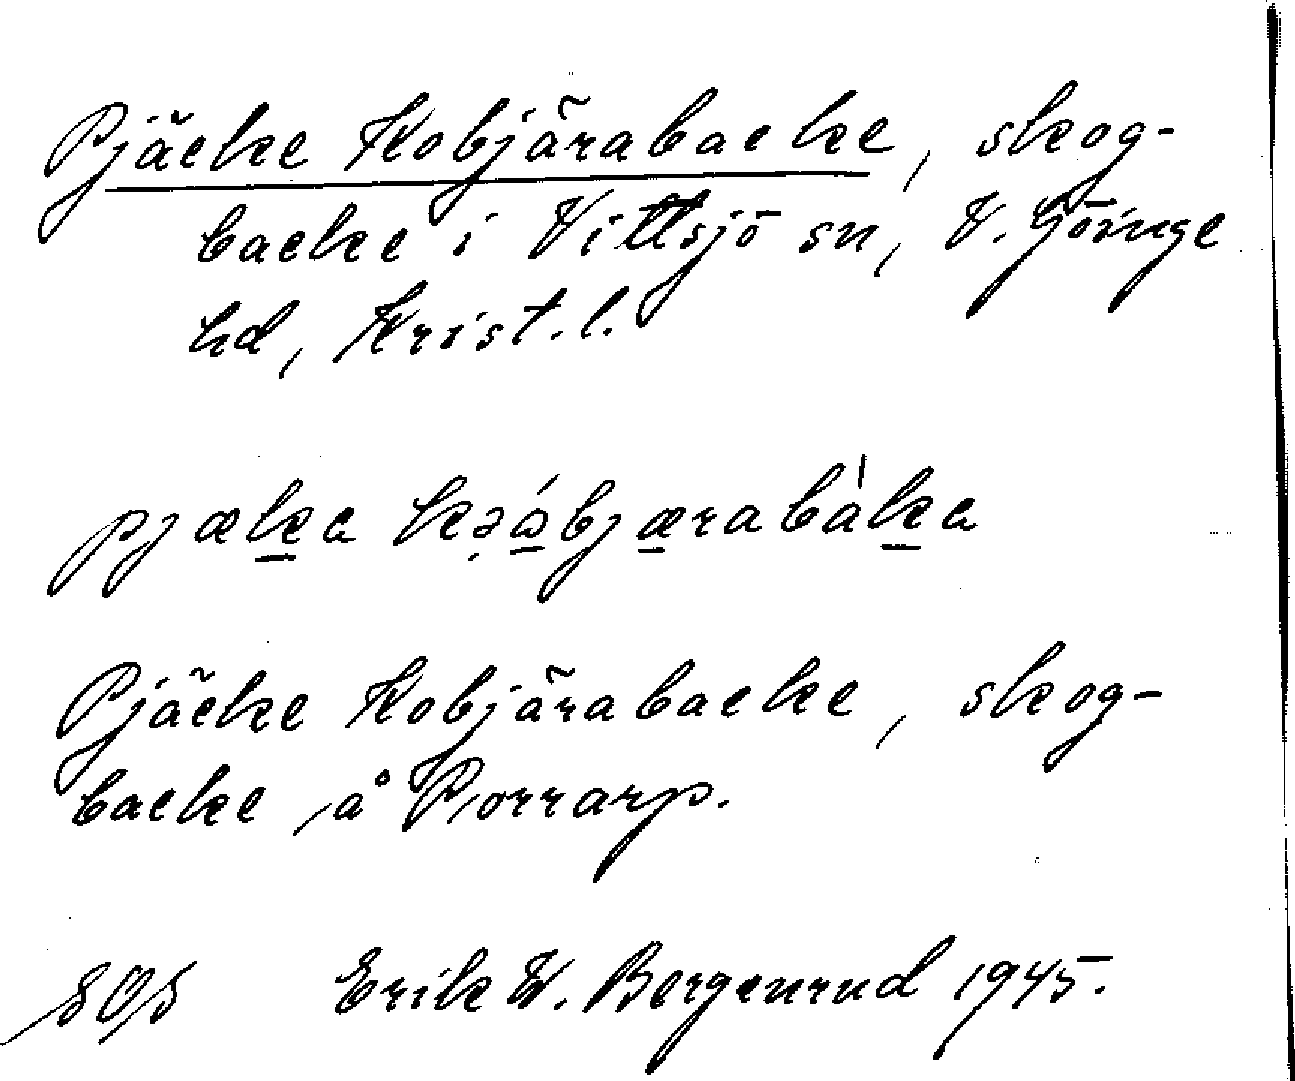 Pjäcke Kobjärabacke, skog-
backe i Vittsjö sn, V. Göinge
hd, Krist. l.
Pjäcke Kobjärabacke, skog-
backe å Porrarp.
Erik W. Bergenrud 1945.